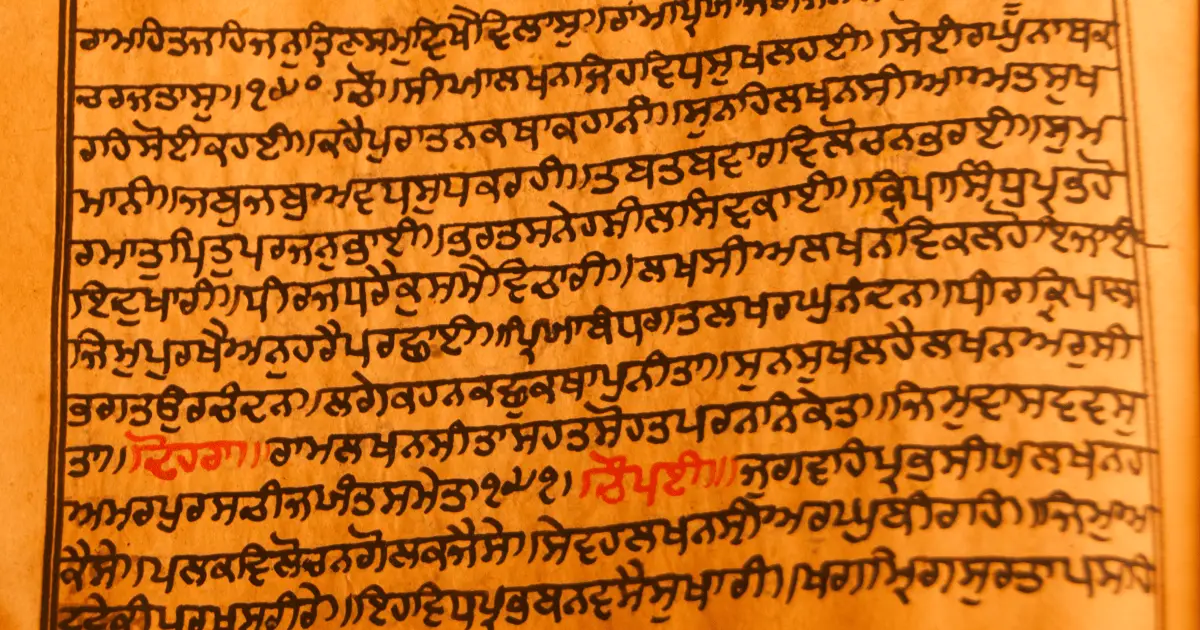 ਰਾਮਹਿਤਜਹਿਜਨੁਤ੍ਰਿਣਸਮੁਵਿਖੈਵਿਲਾਸੁ॥ਰਾਮਾਪ੍ਰਿਯਾ
ਚਰਜਤਾਸੁ॥੧੪੦ ਚੌ॥ਸੀਯਾਲਖਨਜਿਹਵਿਧਸੁਖਲਹਈ॥ਸੋਈਰਘੁਨਾਥਕ
ਰਹਿਸੋਈਕਹਈ॥ਕਹੈਪੁਰਾਤਨਕਥਾਕਹਾਨੀ॥ਸੁਨਹਿਲਖਨਸੀਆਅਤਸੁਖ
ਮਾਨੀ॥ਜਬੁਜਬੁਅਵਧਸੁਧਕਰਹੀ॥ਤਬਤਬਵਾਰਵਿਲੋਚਨਭਰਈ॥ਸੁਮ
ਰਮਾਤੁਪਿਤੁਪਰਜਨੁਭਾਈ॥ਭਰਤਸਨੇਹਸੀਲਸਿਵਕਾਈ॥ਕ੍ਰਿਪਾਸਿੰਧੁਪ੍ਰਭਹੋ
ਇਦੁਖਾਰੀ॥ਧੀਰਜਧਰੈਕੁਸਮੈਵਿਚਾਰੀ॥ਲਖਸੀਅਲਖਨਵਿਕਲਹੋਇਜਾਈ
ਜਿਮੁਪੁਰਖੈਅਨੁਹਰੈਪਰਛਾਈ॥ਪ੍ਰਿਯਾਬੰਧਗਤਲਖਰਘੁਨੰਦਨ॥ਧੀਰਕ੍ਰਿਪਾਲ
ਭਗਤਉਰਚੰਦਨ॥ਲਗੇਕਹਨਕਛੁਕਥਾਪੁਨੀਤਾ॥ਸੁਨਸੁਖਲਹੈਲਖਨਅਰੁਸੀ
ਤਾ॥ਦੋਹਰਾ॥ਰਾਮਲਖਨਸੀਤਾਸਹਤਸੋਹਤਪਰਨਨਿਕੇਤ॥ਜਿਮੁਵਾਸਵਵਸੁ
ਅਮਰਪੁਰਸਚੀਜਯੰਤਸਮੇਤ॥੧੪੧॥ਚੌਪਈ॥ਜੁਗਵਹਿਪ੍ਰਭਸੀਯਲਖਨਹ
ਕੈਸੇ॥ਪਲਕਵਿਲੋਚਨਗੋਲਕਜੈਸੇ॥ਸੇਵਹਲਖਨਸੀਅਰਘੁਬੀਰਹਿ॥ਜਿਮੁਅ
ਵਵੇਕੀਪੁਰਖਸਰੀਰੇ॥ਇਹਵਿਧਪ੍ਰਭਬਨਵਸੈਸੁਖਾਰੀ॥ਖਗਮ੍ਰਿਗਸੁਰਤਾਪਸਹਿ